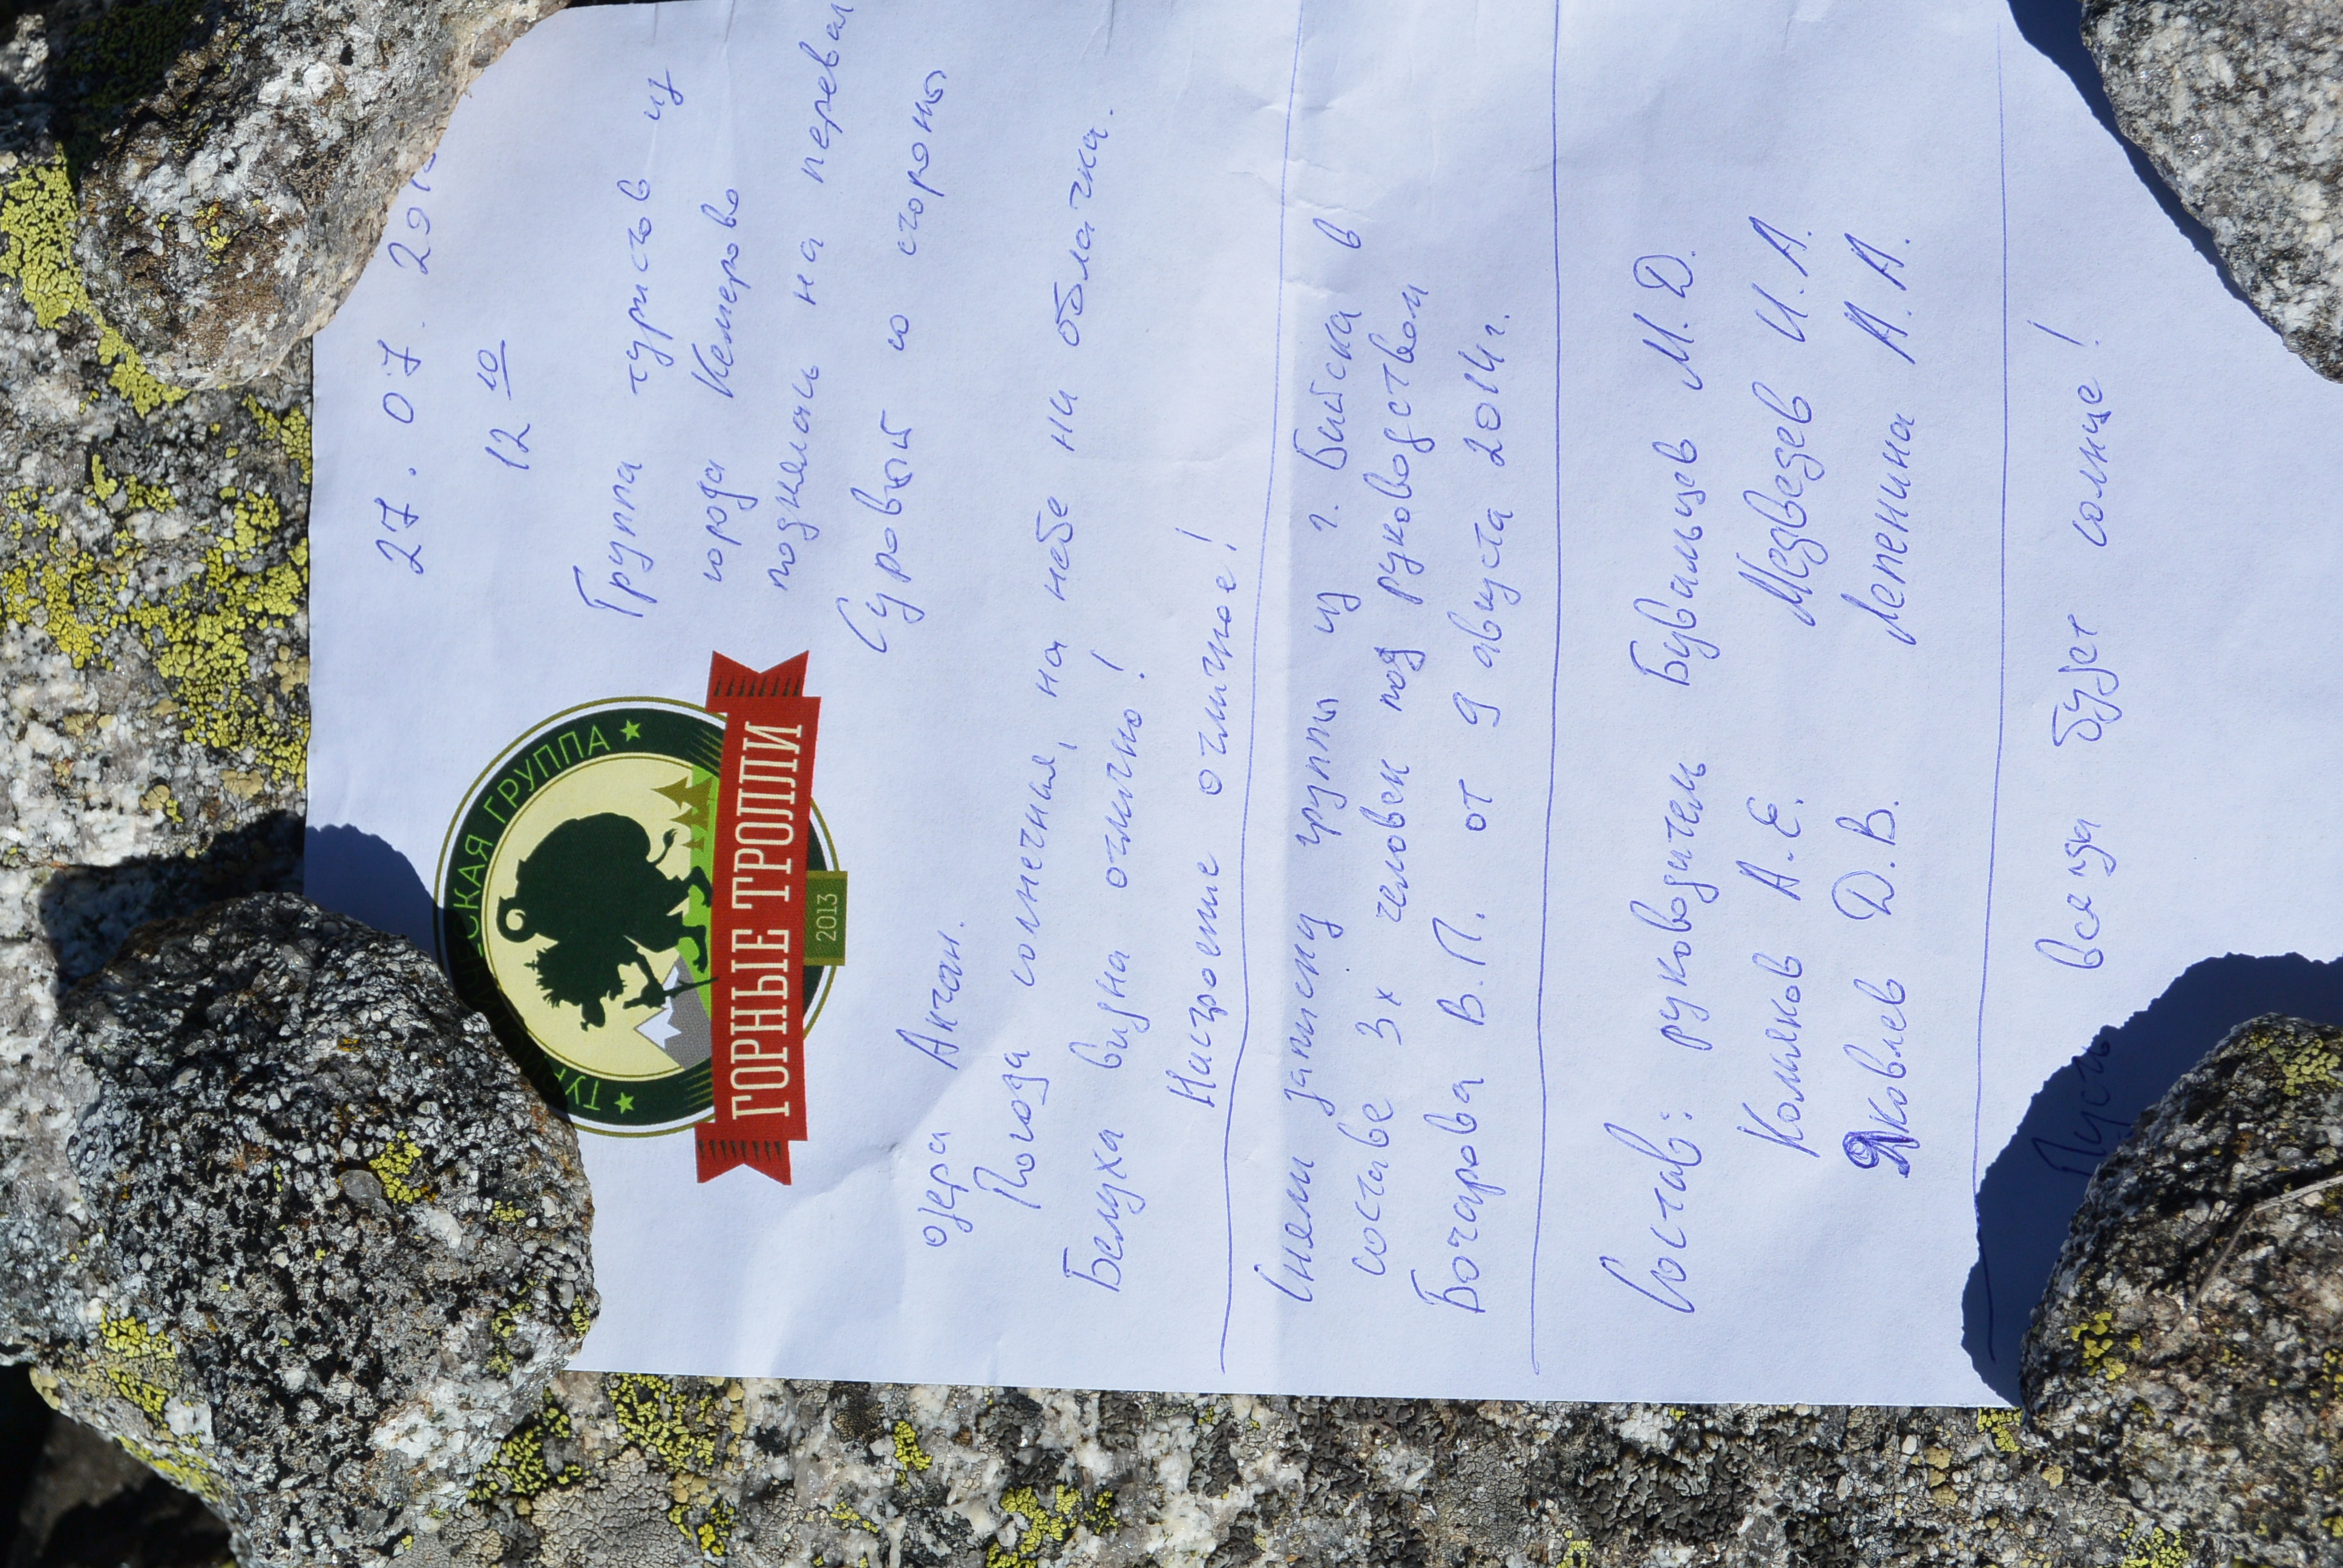 27.07.201
12 10
ТУРИСТИЧЕСКАЯ ГРУППА
ГОРНЫЕ ТРОПЛИ
2013
Группа туристов из
города Кемерово
поднялась на перевал
Суровый со стороны
озера Акчан.
Погода солнечная, на небе ни облачка.
Белуха видна отлично!
Настроение отличное!
Сняли записку группы из г. Бийска в
составе 3х человек под руководством
Бочарова В.П. от 9 августа 2014г.
Состав: руководитель Бувальцев М.Д.
Колмяков А.Е. Медведев И.А.
Яковлев Д.В. Лепенина А.А.
Пусть всегда будет солнце!